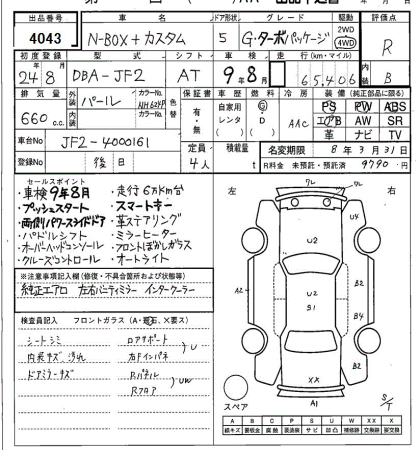 出品番号 車名 ドア形状 グレード 駆動 評価点
4043 N-BOX+カスタム 5 G・ターボパッケージ 2WD 4WD R
初度登録 型式 シフト 車検 走行(km・マイル) 内装
24年8月 DBA-JF2 AT 9年8月 65,406 B
排気量 外装 カラーNo. 色替 保証書 車歴 燃料 冷房 装備(純正部品に限る)
660 c.c. パール NH624P 有・無 自家用 レンタ G・D AAC PS PW ABS
内装 カラーNo. エアB AW SR
革 ナビ TV
車台No JF2-4000161 定員 積載量 名変期限 8年3月31日
登録No 後日 4人 t R料金 未預託・預託済 9790円
セールスポイント
・車検9年8月 ・走行6万km台
・プッシュスタート ・スマートキー
・両側パワースライドドア ・革ステアリング
・パドルシフト ・ミラーヒーター
・オーバーヘッドコンソール ・フロントぼかしガラス
・クルーズコントロール ・オートライト
※注意事項記入欄(修復・不具合箇所および状態等)
純正エアロ 左右バニティミラー インタークーラー
検査員記入 フロントガラス(A・飛石・X要ス)
シートシミ ロアサポート
内装キズ汚れ 右Fインパネ U
ドアミラーキズ Rパネル
Rフロア UW
左 右
U4
U2
A2 U2 B2
B1 B4
B2
XX
A1
スペア S/T
A B C P S U W X XX
線キズ 要板金 腐蝕 要塗装 サビ 凹凸 補修跡 交換跡 要交換